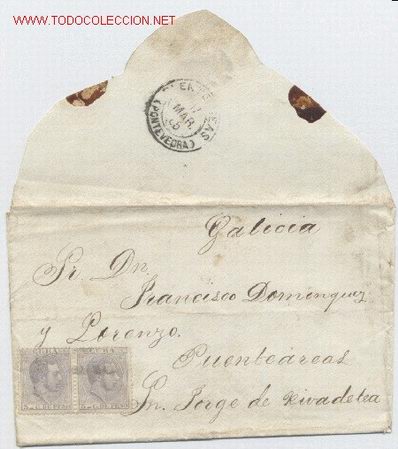 www.TODOCOLECCION.NET
MAR.
(PONTEVEDRA)
Galicia
Sr. Dn.
Francisco Domenguez
y Lorenzo.
Puenteáreas
Sn. Jorge de Rivadetea
CUBA CUBA